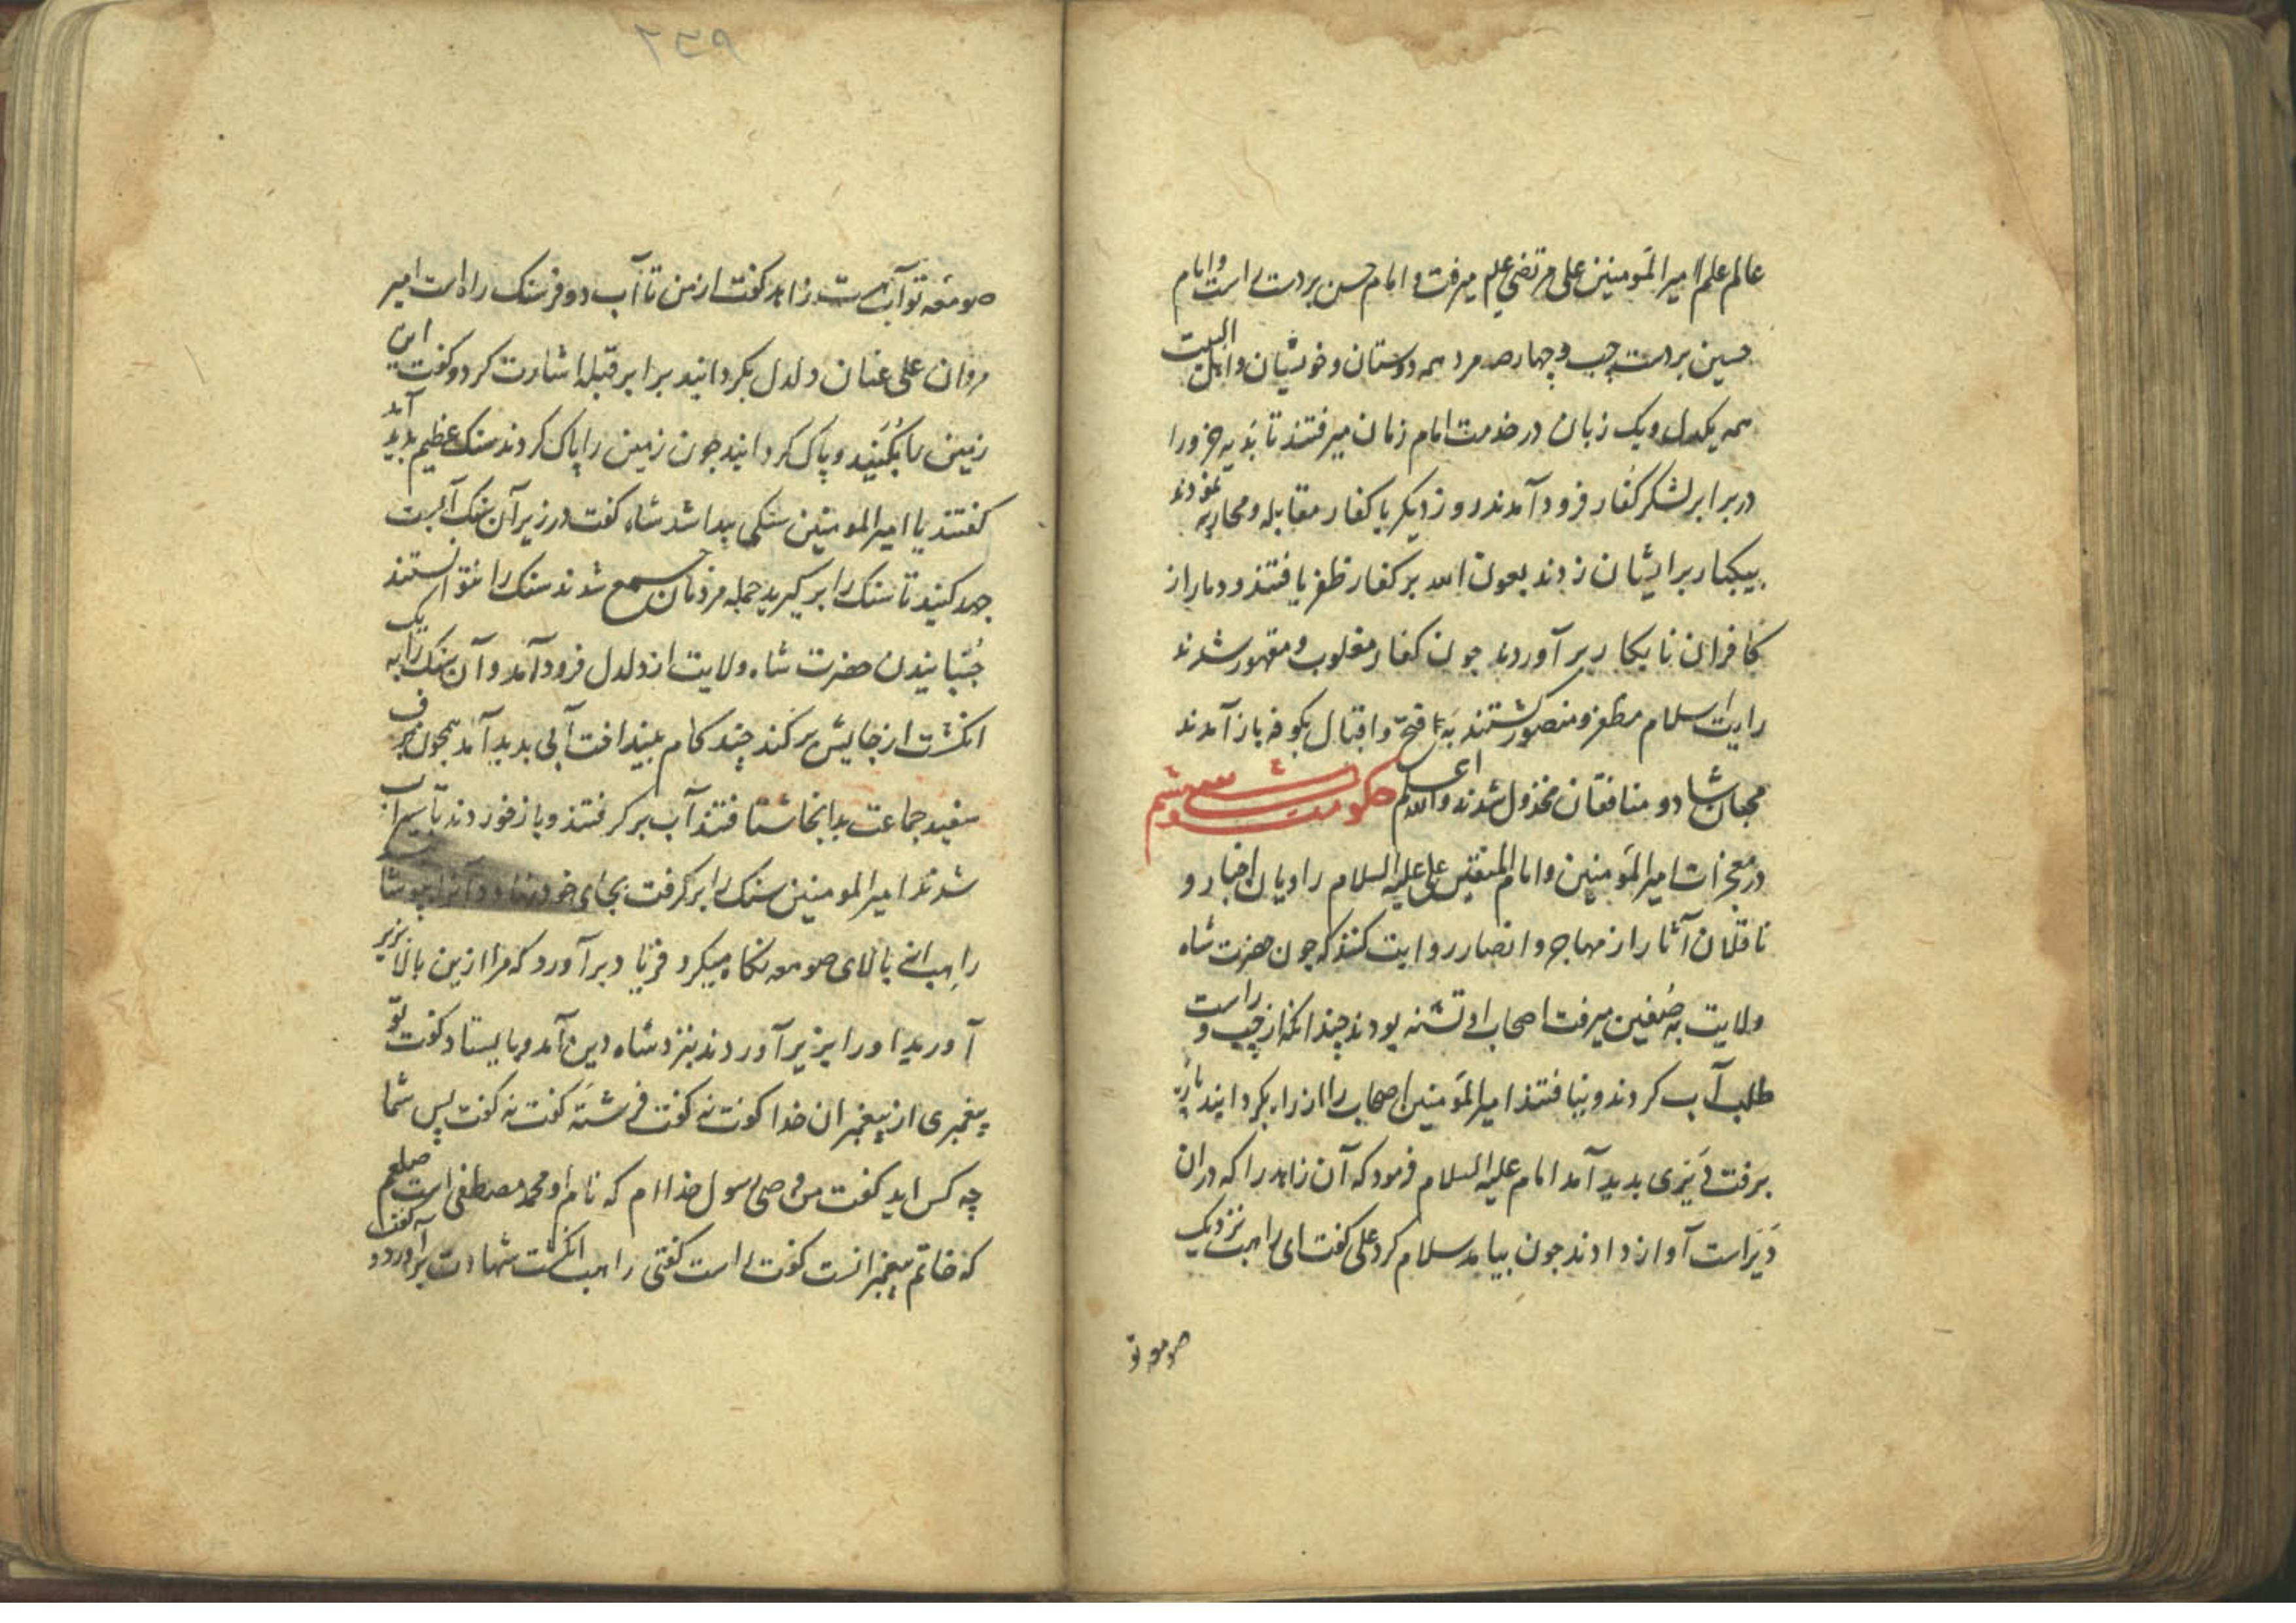 عالم علم امیر المؤمنین علی مرتضی علیم میرفت و امام حسن بر دست راست و امام
حسین بر دست چپ و چهار صد مرد همه دوستان و خویشان و اهل البیت
همه یکدل و یک زبان در خدمت امام زمان میرفتند تا بدیه خزورا
در برابر لشکر کفار فرود آمدند روز دیکر با کفار مقابله و محاربه نمودند
بیکبار بر ایشان زدند بعون الله بر کفار ظفر یافتند و دمار از
کافران نابکار بر آوردند جون کفار مغلوب و مقهور شدند
رایت اسلام مظفر و منصور کشتند به با فتح و اقبال بکوفه باز آمدند
محبان شاد و منافقان مخذول شدند والله اعلم حکومت شصت و ششم
در معجزات امیر المؤمنین و امام المتقین علی علیه السلام راویان اخبار و
ناقلان آثار از مهاجر و انصار روایت کنند که جون حضرت شاه
ولایت به صفین میرفت اصحاب او تشنه بودند چندانکه از چپ و راست
طلب آب کردند و نیافتند امیر المؤمنین اصحاب را از راه بکردانید پاره
برفت دیری بدید آمد امام علیه السلام فرمود که آن زاهد را که در ان
دیر است آواز دادند جون بیامد سلام کرد علی کفت ای راهب نزدیک
صومعه تو
۲۵۹
صومعه تو آب هست زاهد کفت از من تا آب دو فرسنک راه است امیر
مردان علی عنان دلدل بکردانید برابر قبله اشارت کرد و کفت این
زمین را بکنید و پاک کردانید جون زمین را پاک کردند سنک عظیم بدید آمد
کفتند یا امیر المومنین سنکی پیدا شد شاه کفت در زیر آن سنک آبست
جهد کنید تا سنک را بر کیرید جمله مردمان جمع شدند سنک را نتوانستند
جنبانیدن حضرت شاه ولایت از دلدل فرود آمد و آن سنک را به یک
انکشت از جایش بر کند چند کام بینداخت آبی بدید آمد همجون برف
سفید جماعت بدانجا شتافتند آب بر کرفتند و باز خوردند تا سیراب
شدند امیر المومنین سنک را بر کرفت بجای خود نهاد و آنرا بپوشا
راهب از بالای صومعه نکاه میکرد فریاد بر آورد که مرا ازین بالا بزیر
آورید او را بزیر آوردند بنزد شاه دین آمد و بایستاد کفت تو
پیغمبری از پیغمبران خدا کفت نه کفت فرشته کفت نه کفت پس شما
چه کس اید کفت من وصی رسول خدا ام که نام او محمد مصطفی است صلعم
که خاتم پیغمبرانست کفت راست کفتی راهب انکشت شهادت بر آورد و کفت